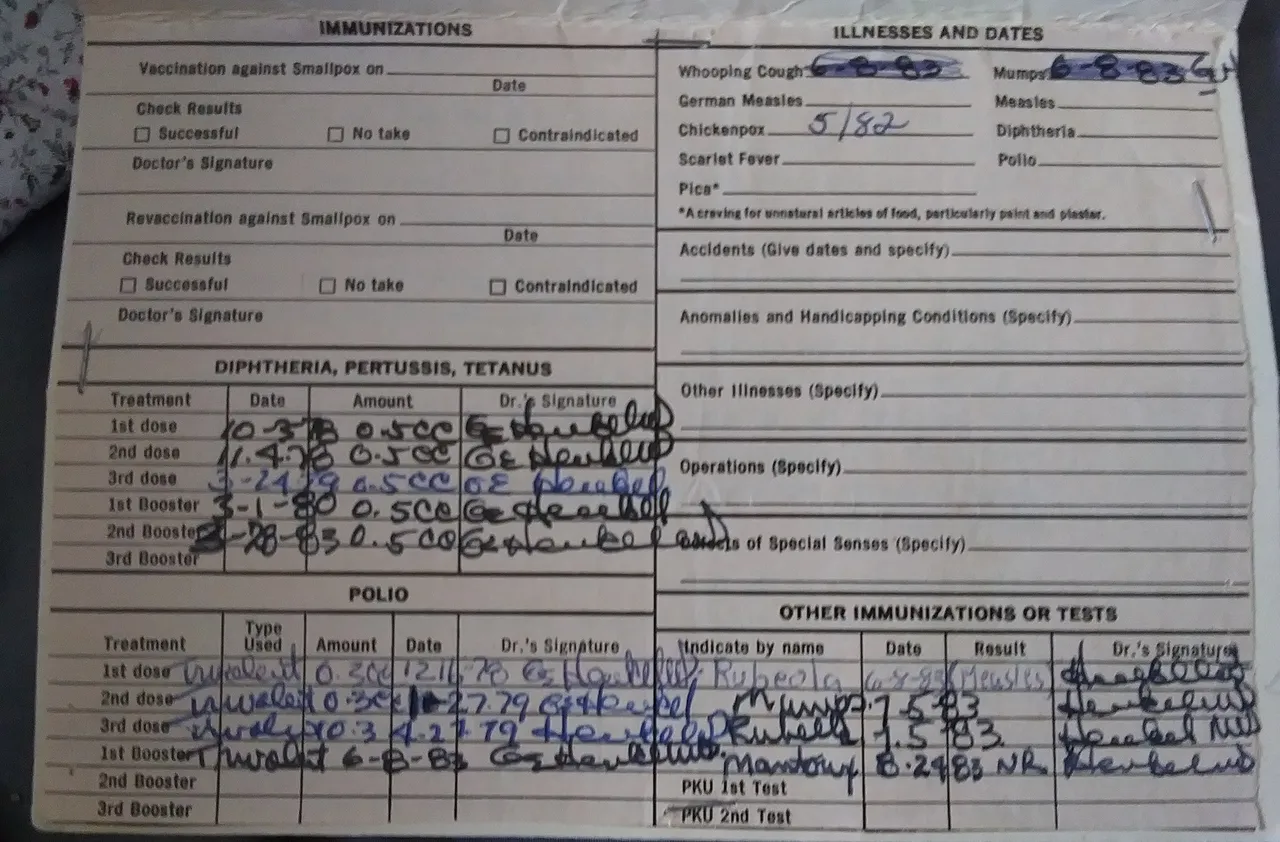 IMMUNIZATIONS
Vaccination against Smallpox on
Date
Check Results
Successful No take Contraindicated
Doctor's Signature
Revaccination against Smallpox on
Date
Check Results
Successful No take Contraindicated
Doctor's Signature
DIPHTHERIA, PERTUSSIS, TETANUS
Treatment Date Amount Dr.'s Signature
1st dose 10-3-78 0.5cc
2nd dose 11.4.78 0.5cc
3rd dose 3-24-79 0.5cc
1st Booster 3-1-80 0.5cc
2nd Booster -28-83 0.5cc
3rd Booster
POLIO
Treatment Type Used Amount Date Dr.'s Signature
1st dose Trivalent 0.3cc
2nd dose Trivalent 0.3cc 27.79
3rd dose 0.3 4.27.79
1st Booster Trivalent 6-8-83
2nd Booster
3rd Booster
ILLNESSES AND DATES
Whooping Cough 6-8-83 Mumps 6-8-83
German Measles Measles
Chickenpox 5/82 Diphtheria
Scarlet Fever Polio
Pica*
*A craving for unnatural articles of food, particularly paint and plaster.
Accidents (Give dates and specify)
Anomalies and Handicapping Conditions (Specify)
Other Illnesses (Specify)
Operations (Specify)
Defects of Special Senses (Specify)
OTHER IMMUNIZATIONS OR TESTS
Indicate by name Date Result Dr.'s Signature
Rubeola 6-8-83 Measles
Mumps 7.5.83
Rubella 7.5.83
Mantoux 8.24.83 NR
PKU 1st Test
PKU 2nd Test